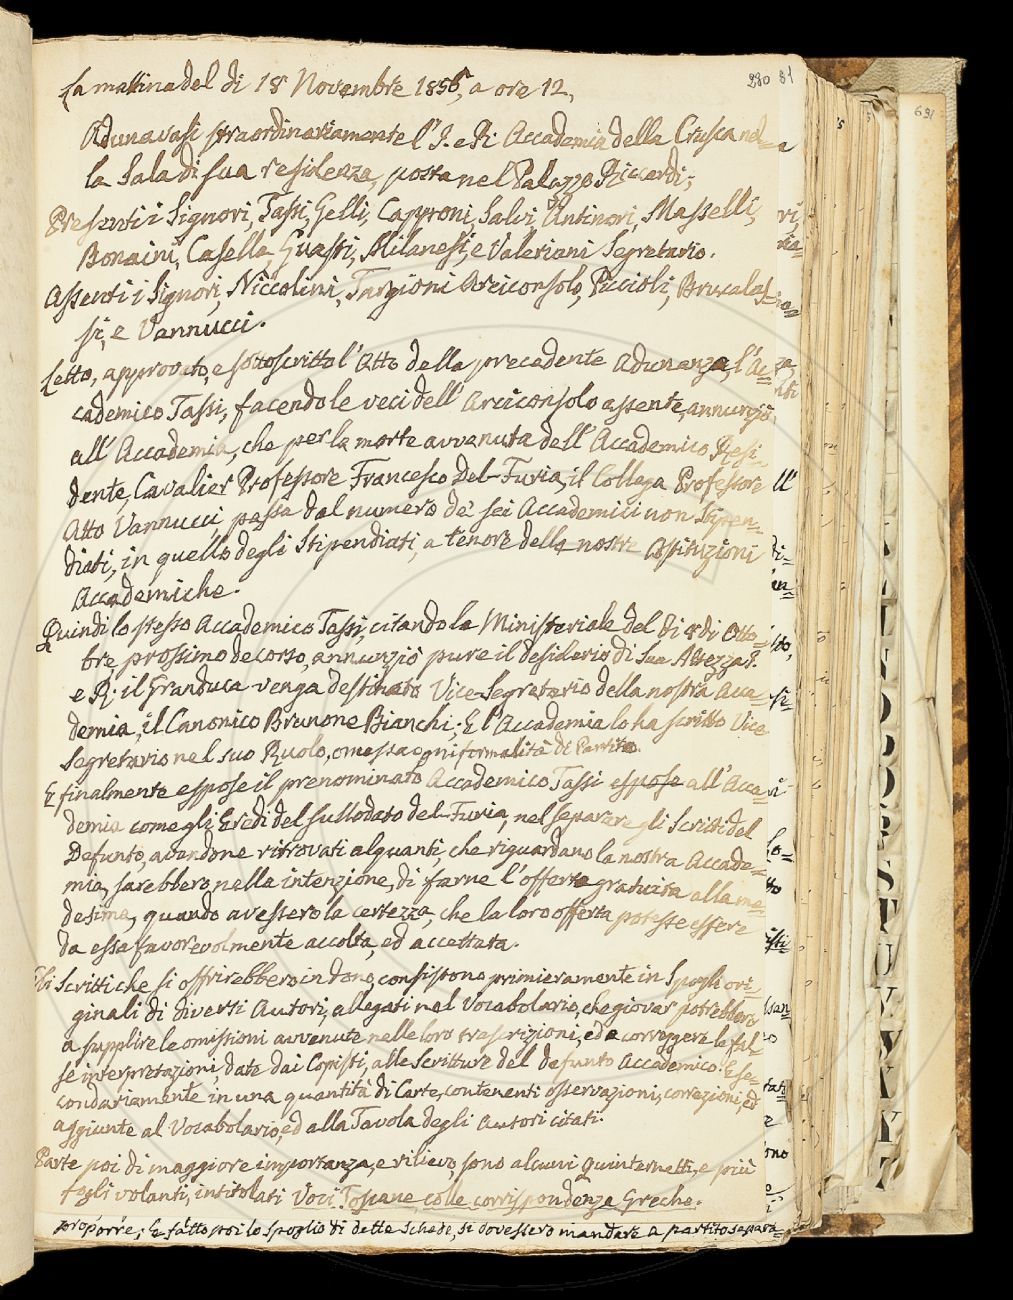 280 81
La mattina del dì 18 Novembre 1856, a ore 12,
Adunavasi straordinariamente l'I. e R. Accademia della Crusca nel=
la Sala di sua residenza, posta nel Palazzo Riccardi;
Presenti i Signori, Tassi, Gelli, Capponi, Salvi, Antinori, Masselli,
Bonaini, Casella, Guasti, Milanesi, e Valeriani Segretario.
Assenti i Signori, Niccolini, Targioni Arciconsolo, Puccioli, Bruscolas=
si, e Vannucci.
Letto, approvato, e sottoscritto l'Atto della precedente Adunanza, l'Ac=
cademico Tassi, facendo le veci dell'Arciconsolo assente, annunziò
all'Accademia, che per la morte avvenuta dell'Accademico Resi=
dente, Cavalier Professore Francesco Del-Furia, il Collega Professore
Atto Vannucci, passa dal numero de' sei Accademici non Stipen=
diati, in quello degli Stipendiati, a tenore delle nostre Costituzioni
Accademiche.
Quindi lo stesso Accademico Tassi, citando la Ministeriale del dì 8 di Otto=
bre prossimo decorso, annunziò pure il desiderio di Sua Altezza I.
e R. il Granduca venga destinato Vice-Segretario della nostra Acca=
demia, il Canonico Brunone Bianchi; E l'Accademia lo ha scritto Vice
Segretario nel suo Ruolo, omessa ogni formalità di Partito.
E finalmente espose il prenominato Accademico Tassi espose all'Acca=
demia come gli Eredi del sullodato del-Furia, nel separare gli Scritti del
Defunto, avendone ritrovati alquanti, che riguardano la nostra Accade=
mia, sarebbero nella intenzione, di farne l'offerta gratuita alla me=
desima, quando avessero la certezza, che la loro offerta potesse essere
da essa favorevolmente accolta, ed accettata.
Gli Scritti che si offrirebbero in dono, consistono primieramente in Spogli ori=
ginali di diversi Autori, allegati nel Vocabolario, che giovar potrebbero
a supplire le omissioni avvenute nelle loro trascrizioni, ed a correggere le fal=
se interpretazioni, date dai Copisti, alle Scritture del defunto Accademico. E se=
condariamente in una quantità di Carte, contenenti osservazioni, correzioni, ed
aggiunte al Vocabolario, ed alla Tavola degli Autori citati.
Parte poi di maggiore importanza, e rilievo, sono alcuni Quinternetti, e più
fogli volanti, intitolati Voci Toscane colle corrispondenze Greche.
proporre; E fatto poi lo spoglio di dette Schede, si dovessero mandare a partito separa=